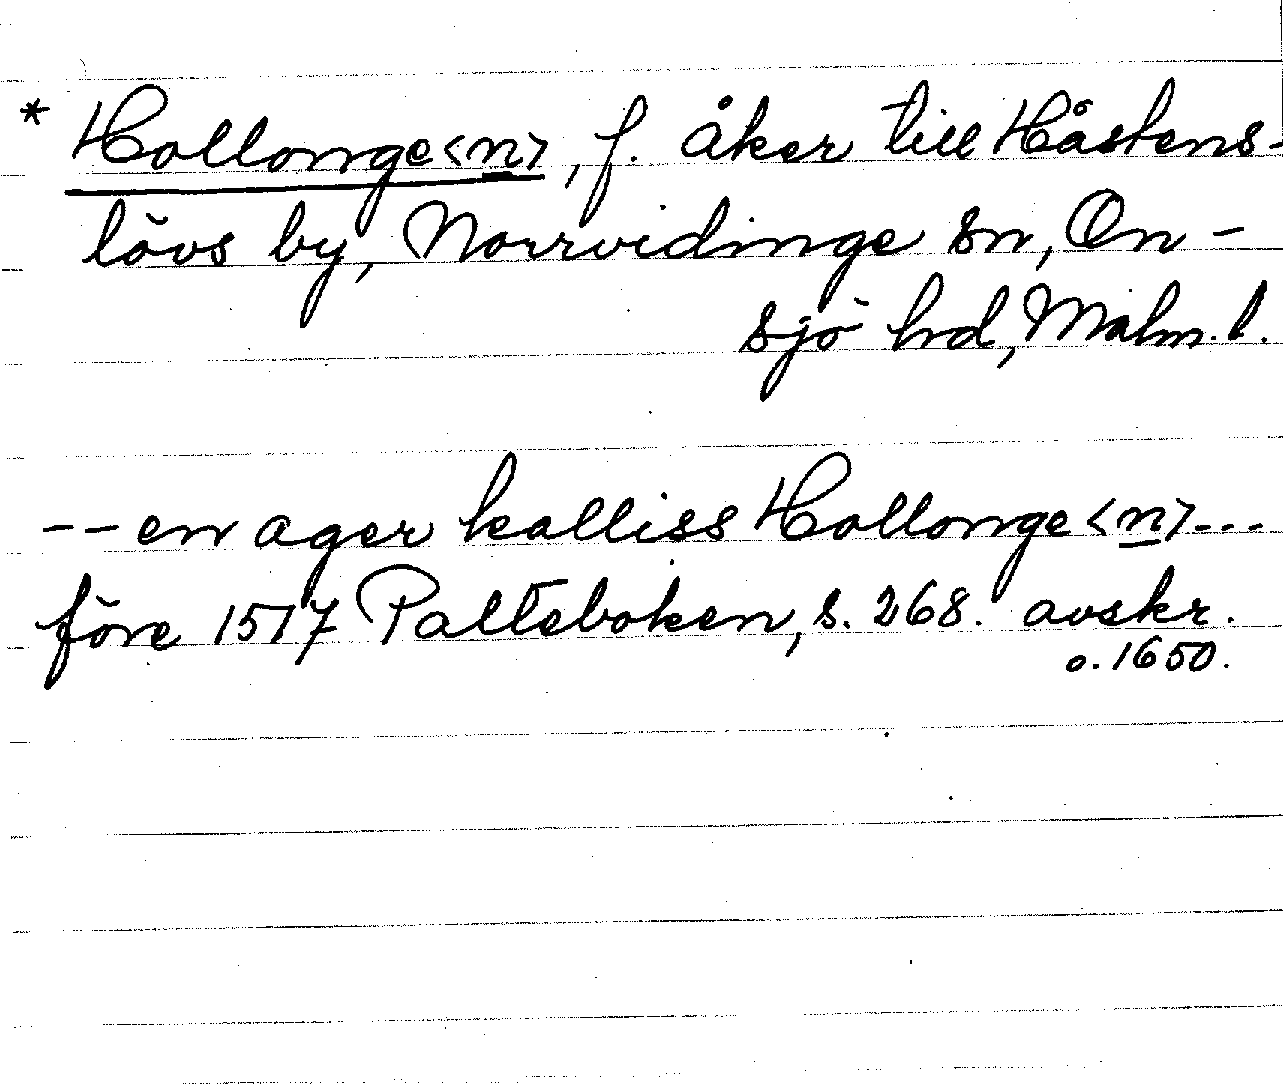 * Hollonge<n>, f. åker till Håstens-
lövs by, Norrvidinge sn, On-
sjö hd, Malm. l.
-- en ager kalliss Hollonge <n>...
före 1517 Palteboken, s. 268. avskr.
o. 1650.